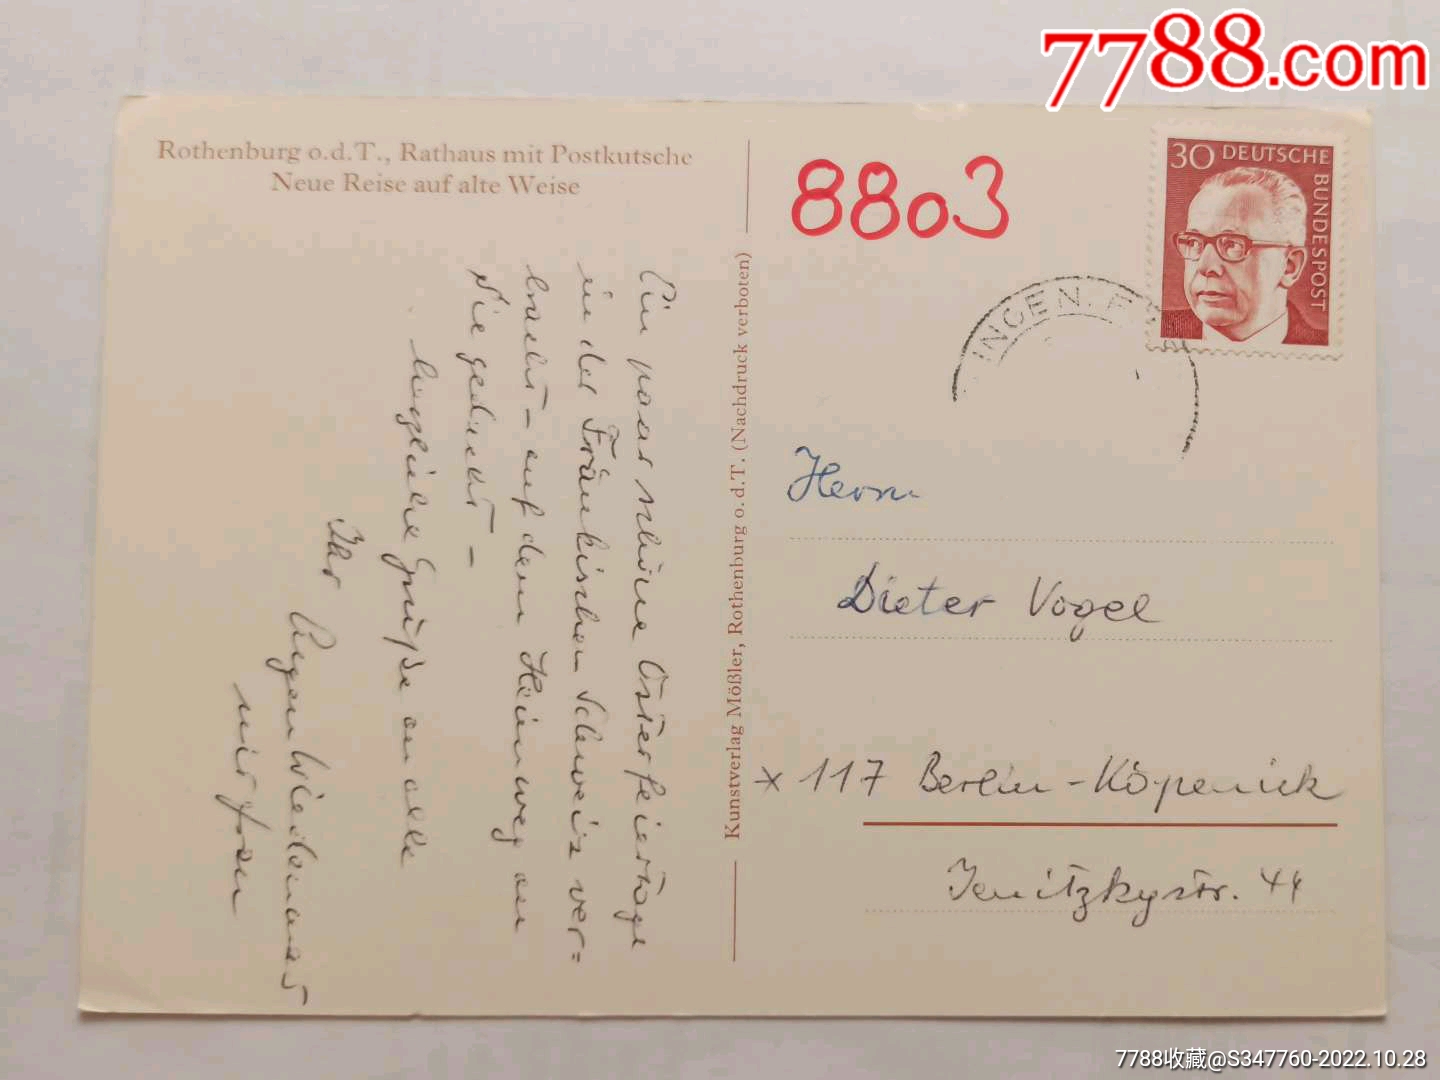 7788.com
Rothenburg o.d.T., Rathaus mit Postkutsche
Neue Reise auf alte Weise
8803
30 DEUTSCHE
BUNDESPOST
INGEN
Ein paar schöne Osterfeiertage
in der Fränkischen Schweiz ver=
bracht – auf dem Heimweg an
Sie gedacht –
herzliche Grüße an alle
Ihr Eugen
mit Frau
Kunstverlag Mößler, Rothenburg o.d.T. (Nachdruck verboten)
Herrn
Dieter Vogel
x 117 Berlin-Köpenick
Jenitzkystr. 44
7788收藏@S347760-2022.10.28